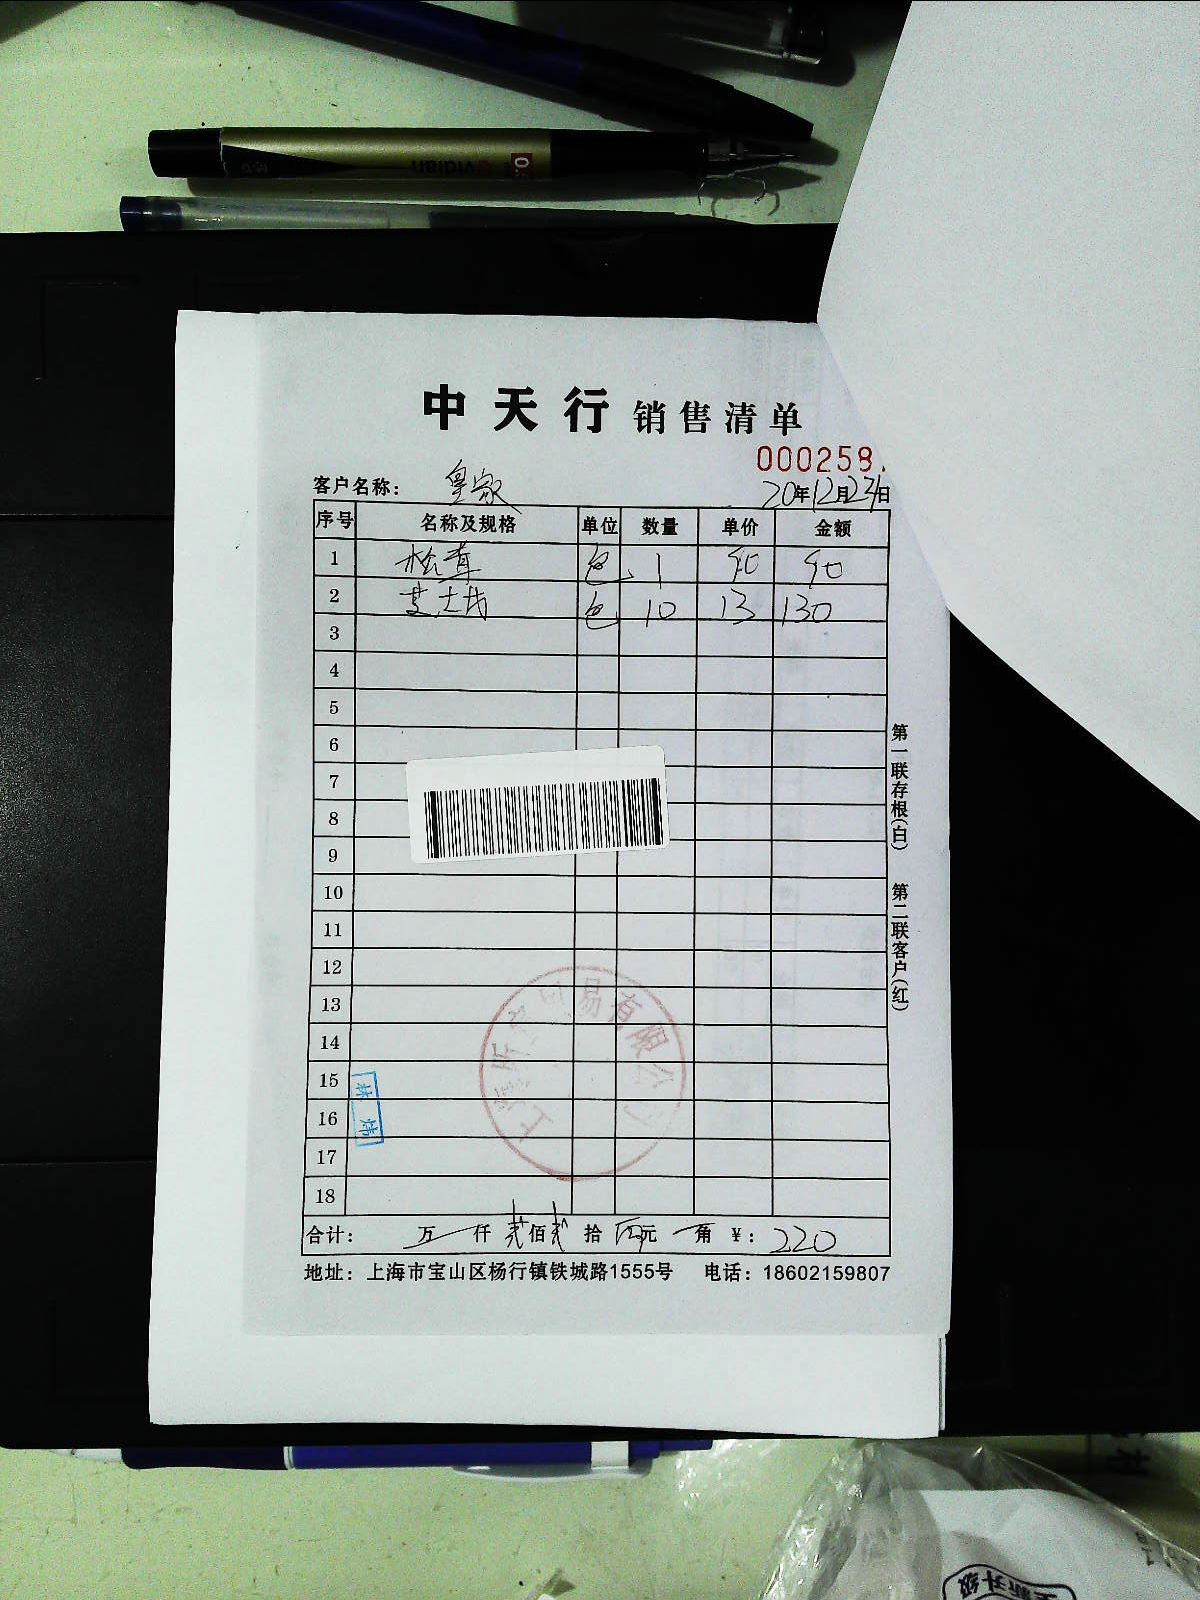 中天行 销售清单
000258
客户名称： 皇家 20年12月23日
序号 名称及规格 单位 数量 单价 金额
1 松茸 包 1 90 90
2 芝士 包 10 13 130
3
4
5
6
7
8
9
10
11
12
13
14
15
16
17
18
合计： 万 仟 贰佰贰拾 元 角 ￥：220
地址：上海市宝山区杨行镇铁城路1555号 电话：18602159807
第一联存根(白) 第二联客户(红)
上海 贸易有限公司
林炜
Ovidian
全新升级